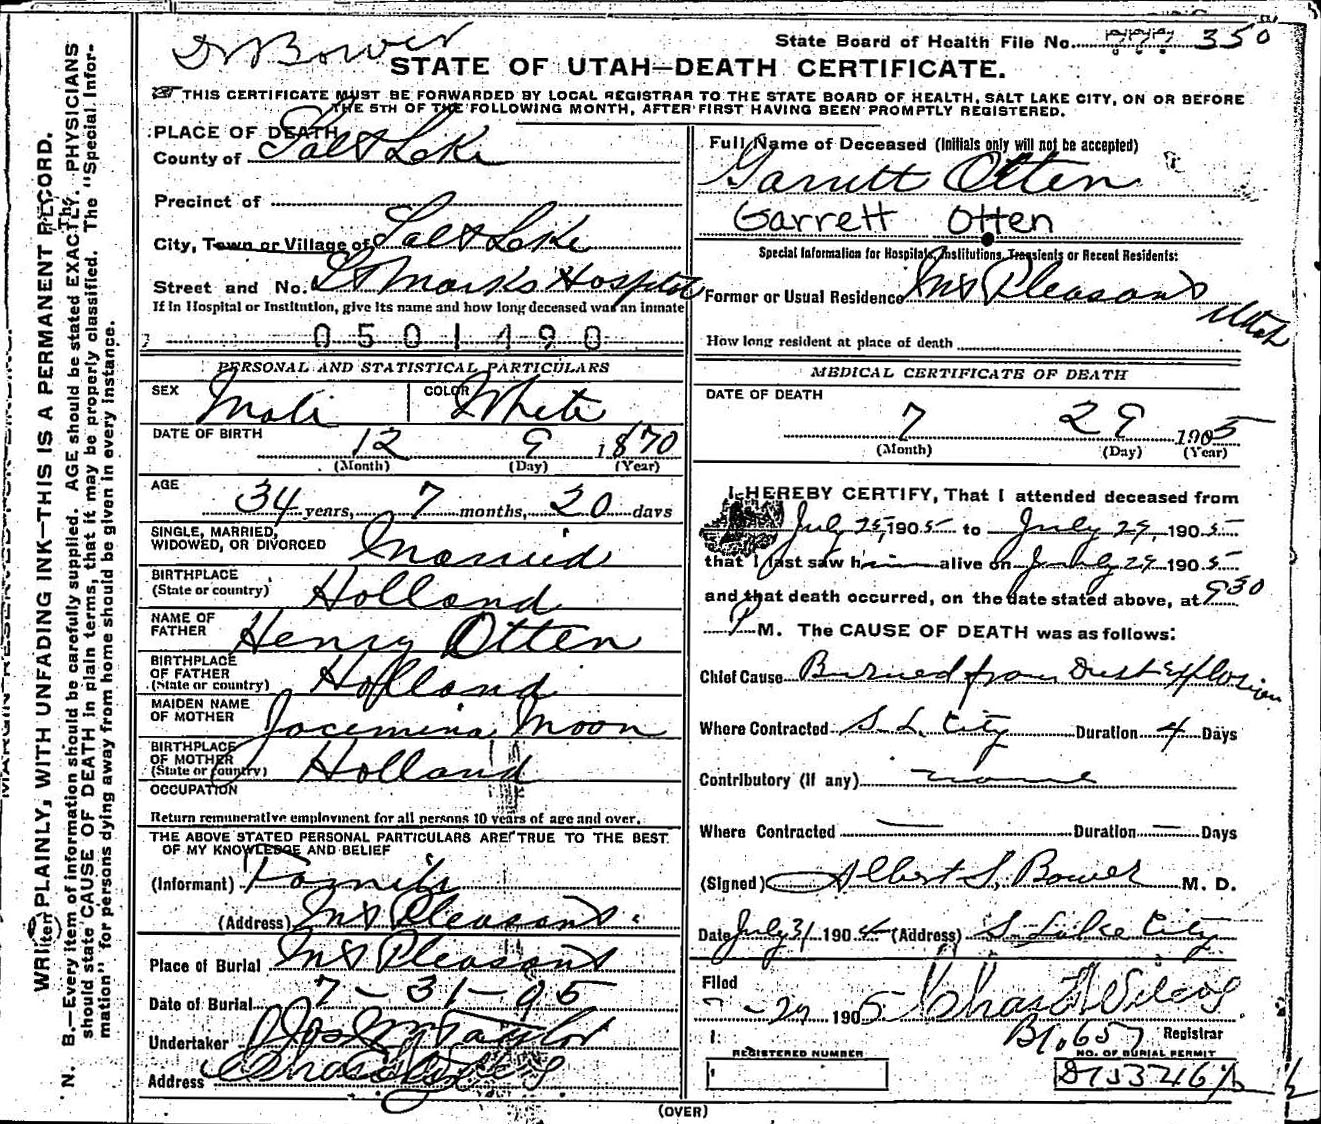 Dr Bower
State Board of Health File No. 350
STATE OF UTAH—DEATH CERTIFICATE.
THIS CERTIFICATE MUST BE FORWARDED BY LOCAL REGISTRAR TO THE STATE BOARD OF HEALTH, SALT LAKE CITY, ON OR BEFORE
THE 5TH OF THE FOLLOWING MONTH, AFTER FIRST HAVING BEEN PROMPTLY REGISTERED.
PLACE OF DEATH
County of Salt Lake
Precinct of
City, Town or Village of Salt Lake
Street and No. St Marks Hospital
If in Hospital or Institution, give its name and how long deceased was an inmate
0501490
PERSONAL AND STATISTICAL PARTICULARS
SEX Male COLOR White
DATE OF BIRTH 12 9 1870
(Month) (Day) (Year)
AGE 34 years, 7 months, 20 days
SINGLE, MARRIED,
WIDOWED, OR DIVORCED Married
BIRTHPLACE
(State or country) Holland
NAME OF
FATHER Henry Otten
BIRTHPLACE
OF FATHER
(State or country) Holland
MAIDEN NAME
OF MOTHER Jacemina Moon
BIRTHPLACE
OF MOTHER
(State or country) Holland
OCCUPATION
Return remunerative employment for all persons 10 years of age and over.
THE ABOVE STATED PERSONAL PARTICULARS ARE TRUE TO THE BEST
OF MY KNOWLEDGE AND BELIEF
(Informant) Family
(Address) Mt Pleasant
Place of Burial Mt Pleasant
Date of Burial 7-31-05
Undertaker Jos Wm Taylor
Address
Full Name of Deceased (Initials only will not be accepted)
Garrett Otten
Garrett Otten
Special Information for Hospitals, Institutions, Transients or Recent Residents:
Former or Usual Residence Mt Pleasant
Utah
How long resident at place of death
MEDICAL CERTIFICATE OF DEATH
DATE OF DEATH
7 29 1905
(Month) (Day) (Year)
I HEREBY CERTIFY, That I attended deceased from
July 25, 1905 to July 29, 1905
that I last saw him alive on July 29 1905
and that death occurred, on the date stated above, at 9 30
P M. The CAUSE OF DEATH was as follows:
Chief Cause Burned from Dust Explosion
Where Contracted S. L. City Duration 4 Days
Contributory (if any) none
Where Contracted — Duration — Days
(Signed) Albert S. Bower M. D.
Date July 31 1905 (Address) S Lake City
Filed
7-29 1905 Chas F Wilcox
B1,657 Registrar
REGISTERED NUMBER NO. OF BURIAL PERMIT
(OVER)
WRITE(ten) PLAINLY, WITH UNFADING INK—THIS IS A PERMANENT RECORD.
N. B.—Every item of information should be carefully supplied. AGE should be stated EXACTLY. PHYSICIANS
should state CAUSE OF DEATH in plain terms, that it may be properly classified. The "Special Infor-
mation" for persons dying away from home should be given in every instance.